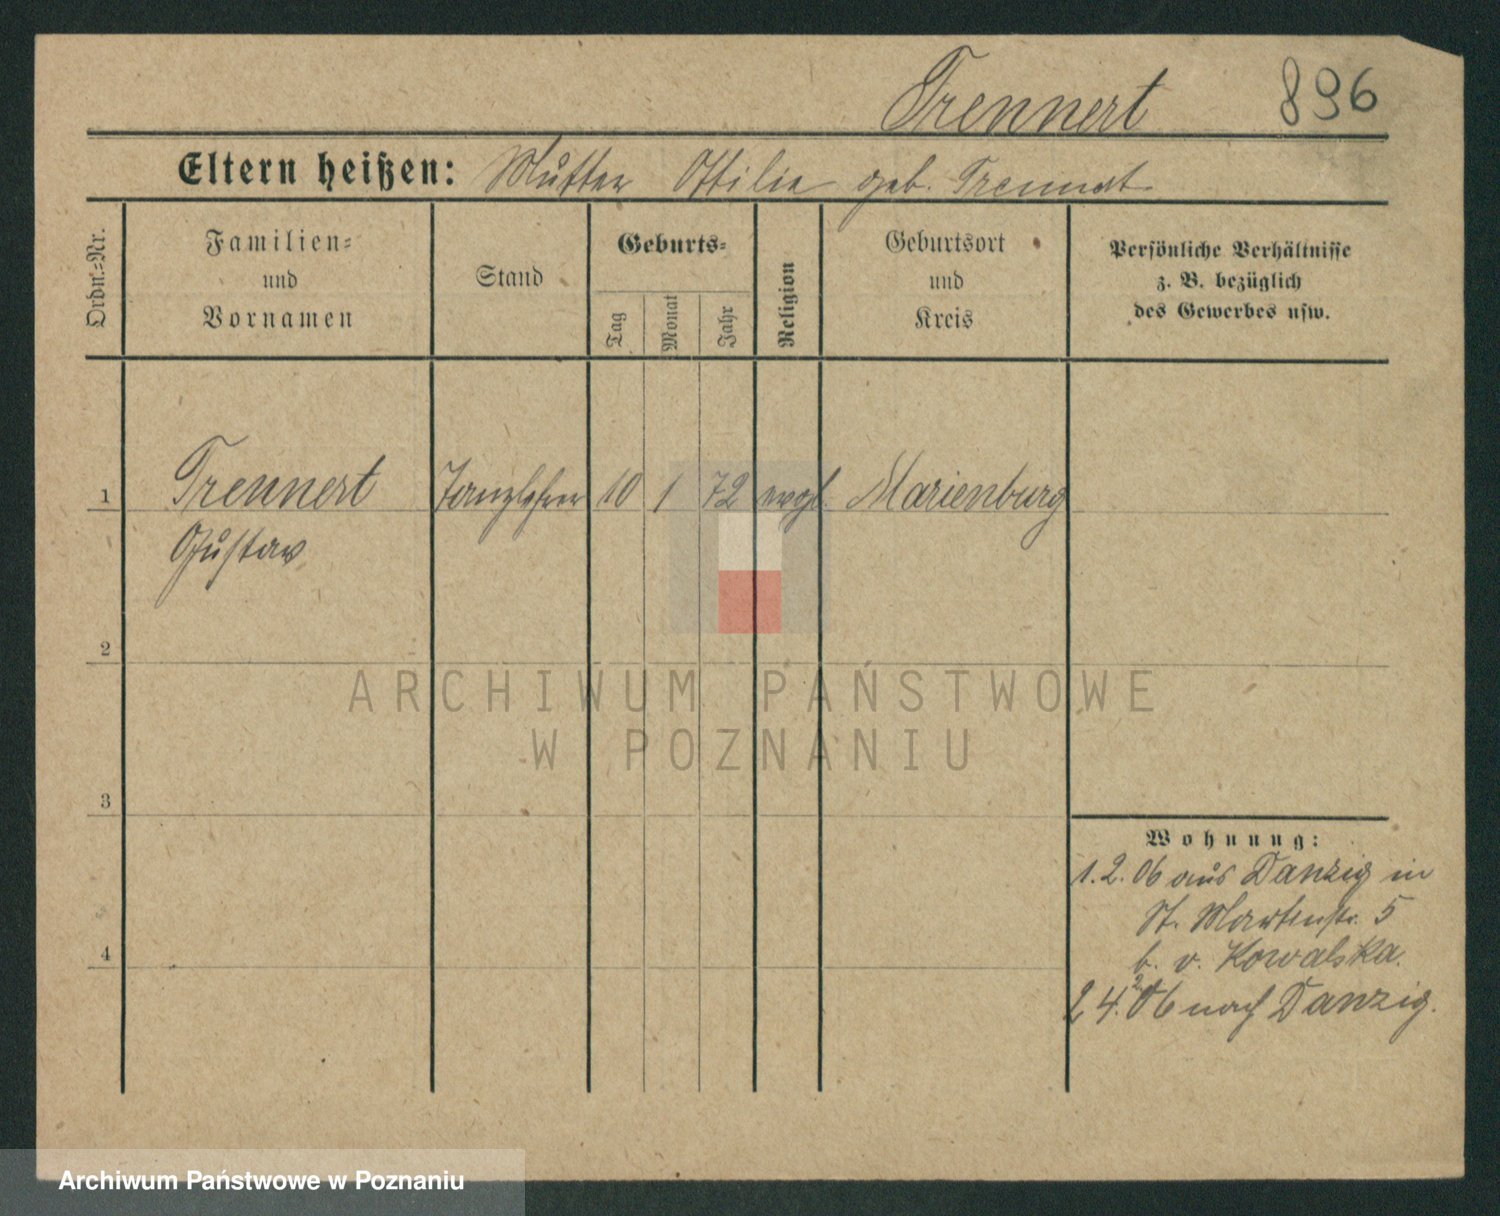 Trennert 896
Eltern heißen: Mutter Ottilie geb. Trennert
Ordn.=Nr.
Familien=
und
Vornamen
Stand
Geburts=
Tag
Monat
Jahr
Religion
Geburtsort
und
Kreis
Persönliche Verhältnisse
z. B. bezüglich
des Gewerbes usw.
1 Trennert Tanzlehrer 10 1 72 evgl. Marienburg
Gustav
2
3
4
Wohnung:
1.2.06 aus Danzig in
St. Martinstr. 5
b. v. Kowalska.
4. 06 nach Danzig.
ARCHIWUM PAŃSTWOWE
W POZNANIU
Archiwum Państwowe w Poznaniu